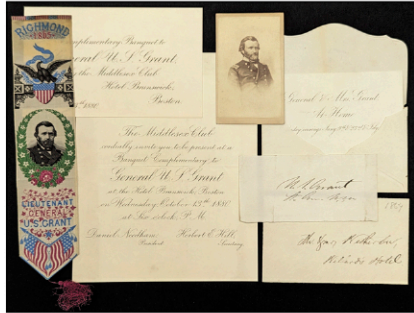 RICHMOND
1865
LIEUTENANT
GENERAL
U.S. GRANT
Complimentary Banquet to
General U.S. Grant,
the Middlesex Club
Hotel Brunswick,
Boston
The Middlesex Club
cordially invite you to be present at a
Banquet Complimentary to
General U.S. Grant
at the Hotel Brunswick, Boston
on Wednesday October 13th 1880
at Six o'clock, P.M.
Daniel Needham
President
Herbert E. Hill,
Secretary
General & Mrs Grant
At Home
U.S. Grant